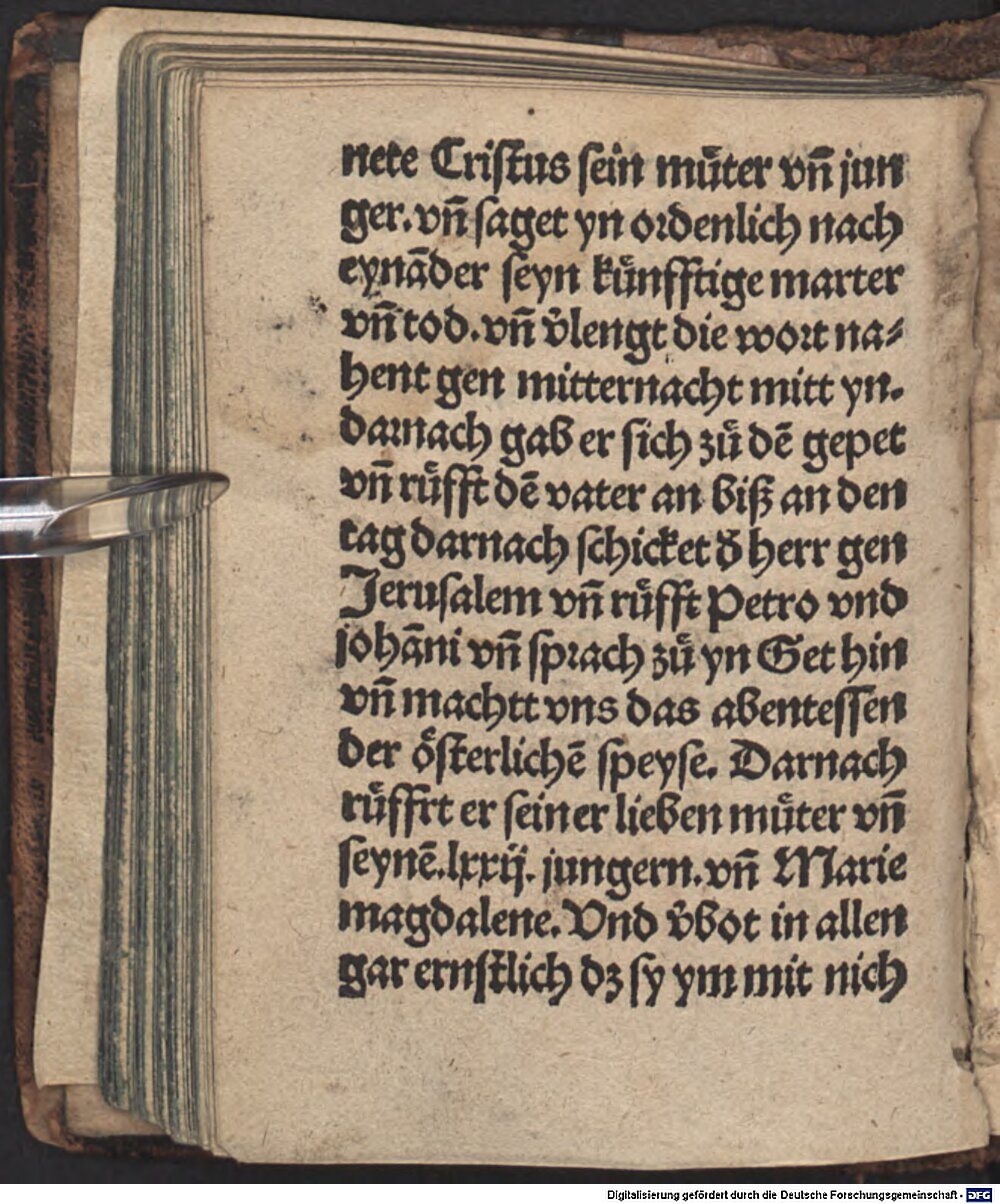 nete Cristus sein muͤter vñ jun
ger. vñ saget yn ordenlich nach
eynāder seyn kuͤnfftige marter
vñ tod. vñ v̓lengt die wort na⸗
hent gen mitternacht mitt yn.
darnach gab er sich zuͤ dē gepet
vñ ruͤfft dē vater an biß an den
tag darnach schicket d̓ herr gen
Jerusalem vñ ruͤfft Petro vnd
johāni vñ sprach zuͤ yn Get hin
vñ machtt vns das abentessen
der oͤsterlichē speyse. Darnach
ruͤffrt er seiner lieben muͤter vñ
seynē. lxxij. jungern. vñ Marie
magdalene. Vnd v̓bot in allen
gar ernstlich dz sy ym mit nich
Digitalisierung gefördert durch die Deutsche Forschungsgemeinschaft - DFG